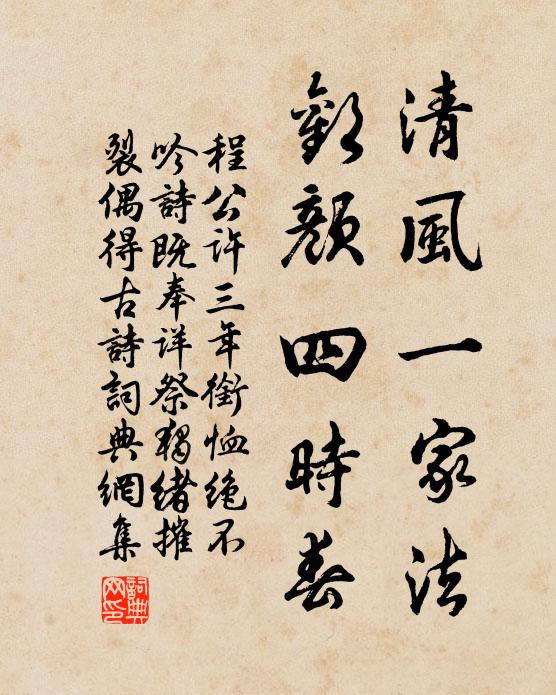 清風一家法
歡顏四時春
程公許三年銜恤絶不
吟詩既奉祥祭獨緒摧
裂偶得古詩詞典網集
詞典網印